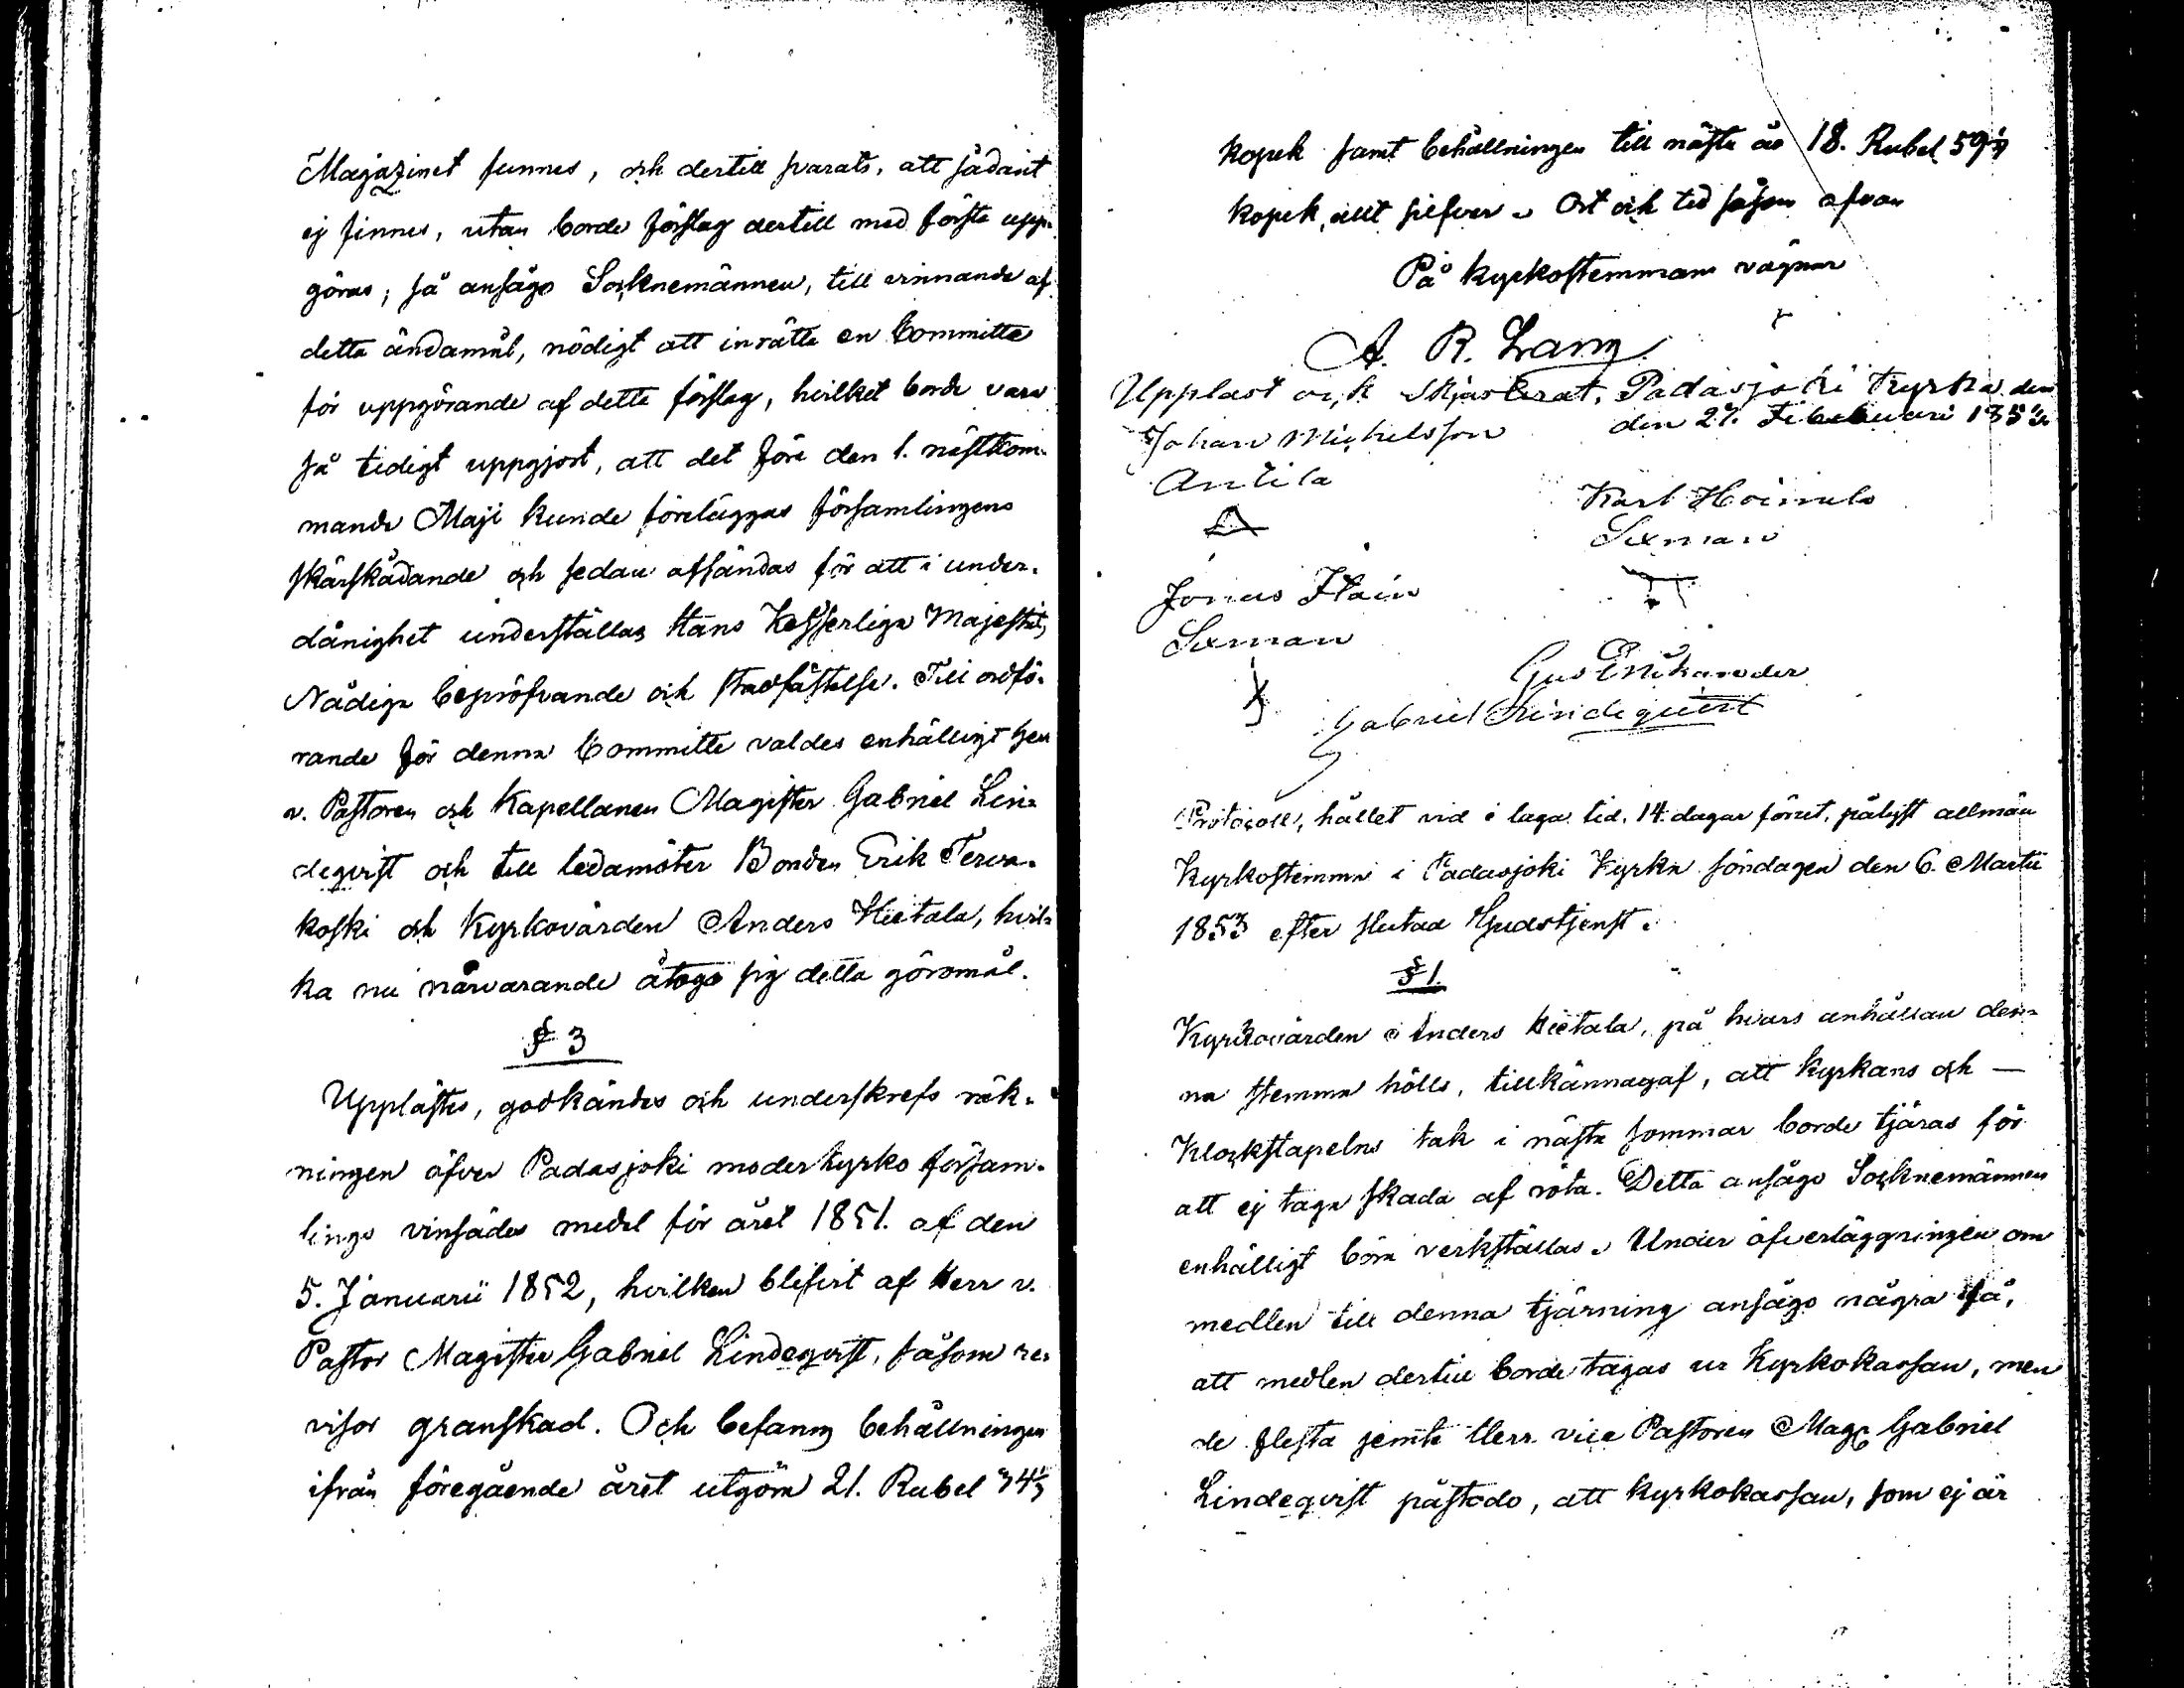 Magazinet funnes, och dertill svarats, att sådant
ej finnes, utan borde förslag dertill med första upp-
göras; så ansågo Socknemännen, till vinnande af
detta ändamål, nödigt att inrätta en Committe
för uppgörande af detta förslag, hvilket borde vara
så tidigt uppgjort, att det före den 1. nästkom-
mande Maji kunde föreläggas församlingens
skärskådande och sedan afsändas för att i under-
dånighet underställas Hans Kejserliga Majestäts
Nådiga bepröfvande och stadfästelse. Till ordfö-
rande för denna Committe valdes enhälligt Herr
v. Pastoren och Kapellanen Magister Gabriel Lin-
deqvist och till ledamöter Bonden Erik Terva-
koski och Kyrkovärden Anders Hietala, hvil-
ka nu närvarande åtogo sig detta göromål.
§ 3
Upplästes, godkändes och underskrefs räk-
ningen öfver Padasjoki moderkyrko försam-
lings vinsädes medel för året 1851. af den
5. Januarii 1852, hvilken blifvit af Herr v.
Pastor Magister Gabriel Lindeqvist, såsom re-
visor granskad. Och befanns behållningen
ifrån föregående året utgöra 21. Rubel
kopek samt behållningen till nästa år 18. Rubel
kopek, allt silfver. Ort och tid såsom ofvan
På kyrkostemmans vägnar
A. R. Lang
Uppläst och Padasjoki Kyrka den
Johan Michelsson den 27. Februari
Antila
Karl
Sexman
Jonas
Sexman
Gus Erik
Gabriel Lindequist
Protocoll, hållet vid i laga tid, 14. dagar förut, pålyst allmän
Kyrkostemma i Padasjoki Kyrka söndagen den 6. Martii
1853 efter slutad Gudstjenst.
§ 1.
Kyrkovärden Anders Hietala, på hvars anhållan den-
na stemma hölls, tillkännagaf, att kyrkans och —
Klockstapelns tak i nästa sommar borde tjäras för
att ej taga skada af röta. Detta ansågo Socknemännen
enhälligt böra verkställas. Under öfverläggningen om
medlen till denna tjärning ansågo några få,
att medlen dertill borde tagas ur Kyrkokassan, men
de flesta jemte Herr vice Pastoren Mag. Gabriel
Lindeqvist påstodo, att kyrkokassan, som ej är